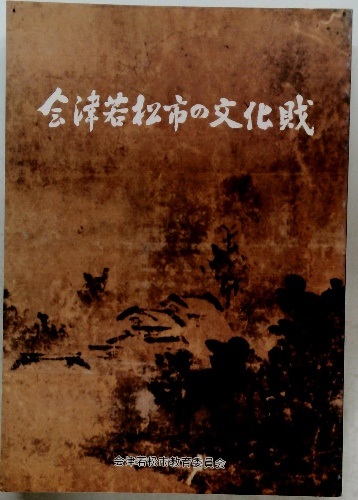 会津若松市の文化財
会津若松市教育委員会